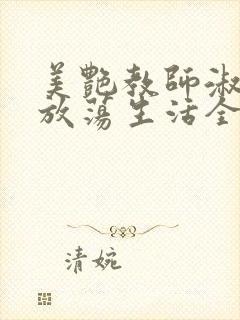 美艷教師淑
放蕩生活全
清婉